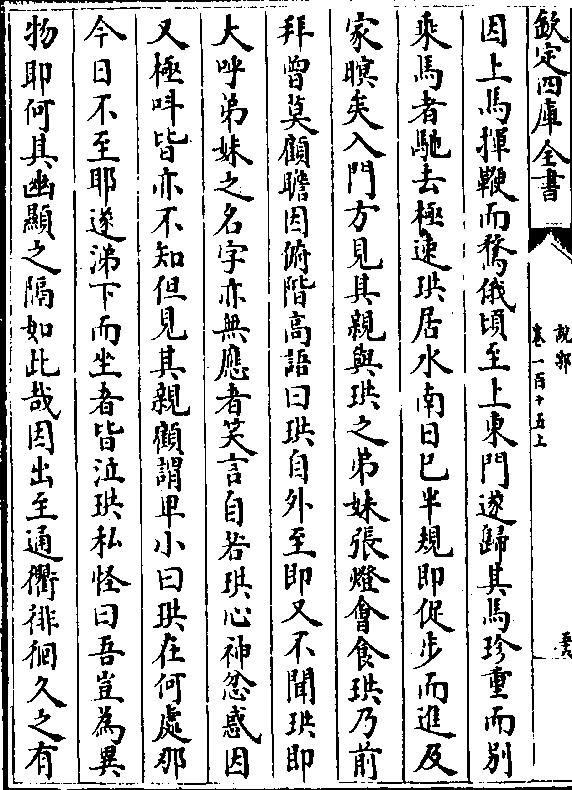 欽定四庫全書
說郛
卷一百十五上
因上馬揮鞭而騖俄頃至上東門遂歸其馬珍重而別
乘馬者馳去極速珙居水南日已半規即促步而進及
家暝矣入門方見其親與珙之弟妹張燈會食珙乃前
拜曾莫顧瞻因俯階高語曰珙自外至即又不聞珙即
大呼弟妹之名字亦無應者笑言自若珙心神忿惑因
又極呌皆亦不知但見其親顧謂卑小曰珙在何處那
今日不至耶遂涕下而坐者皆泣珙私怪曰吾豈為異
物耶何其幽顯之隔如此哉因出至通衢徘徊久之有